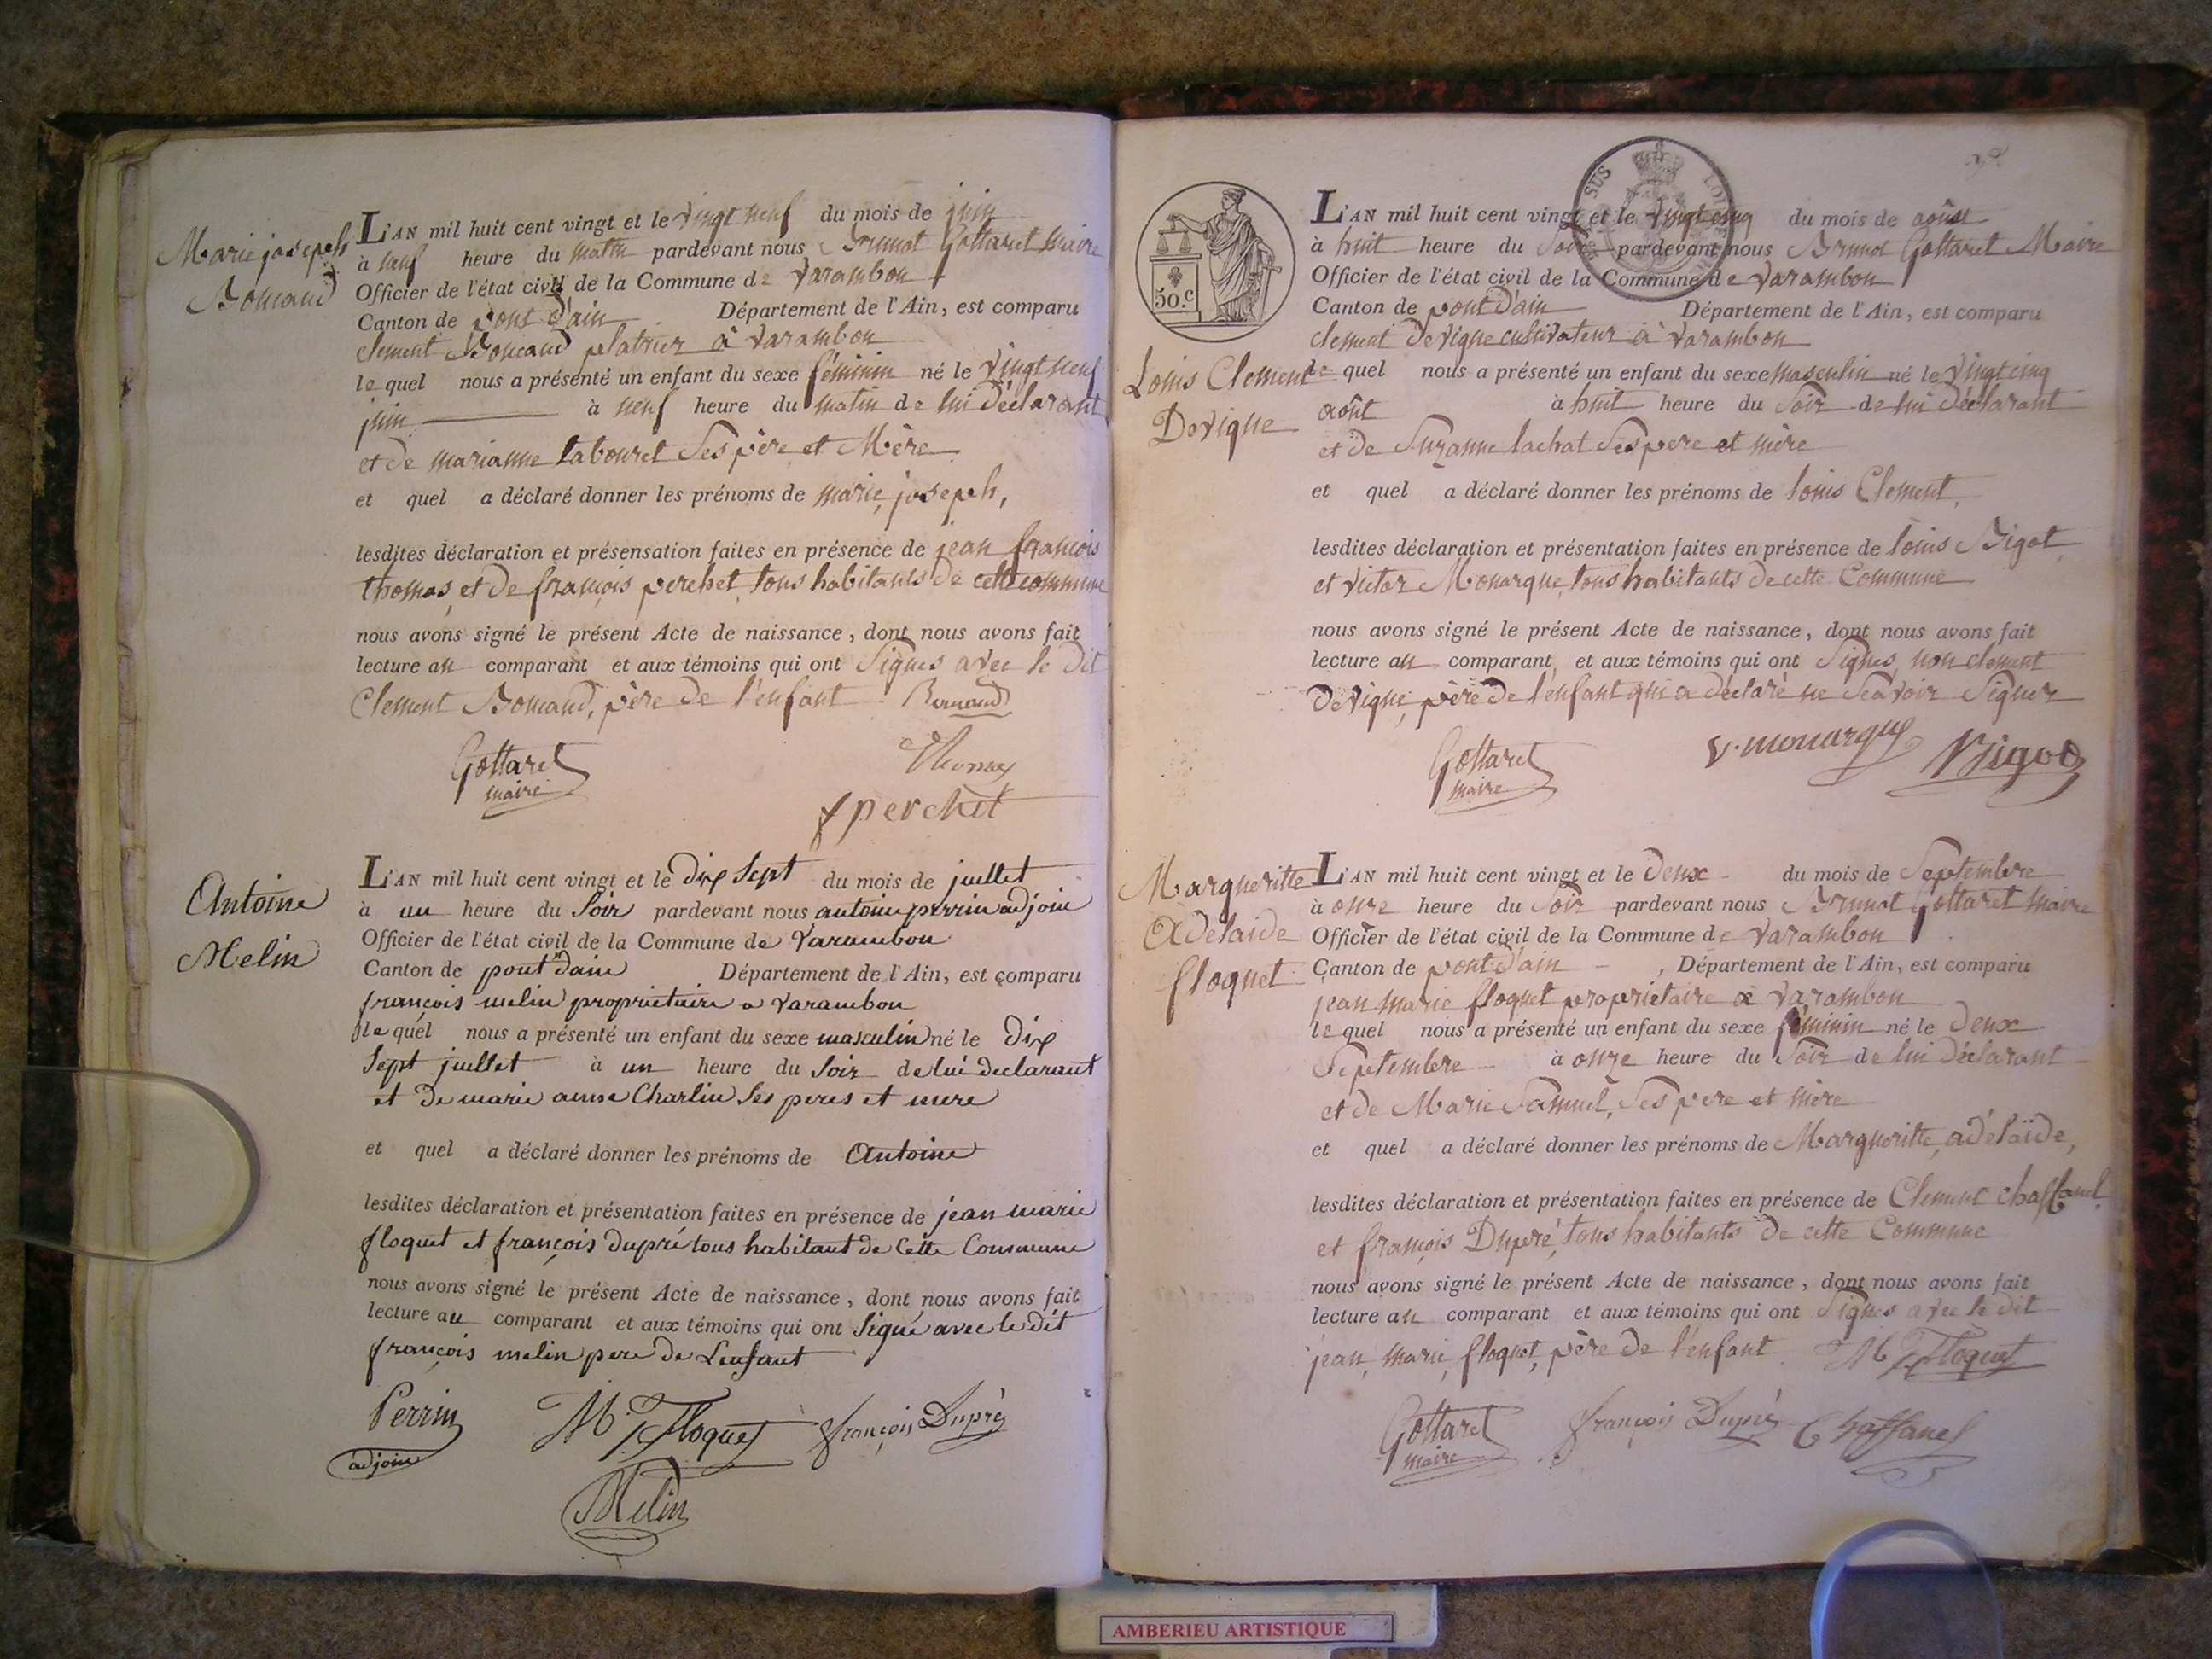 Marie joseph
Bomand
L'AN mil huit cent vingt et le vingt neuf du mois de juin
à neuf heure du matin pardevant nous Brunot Gottaret Maire
Officier de l'état civil de la Commune de Varambon
Canton de pont d'ain Département de l'Ain, est comparu
clement Bomand platrier à Varambon
le quel nous a présenté un enfant du sexe féminin né le vingt neuf
juin à neuf heure du matin de lui déclarant
et de marianne tabouret Ses père et Mère
et quel a déclaré donner les prénoms de marie, joseph,
lesdites déclaration et présensation faites en présence de jean françois
thomas, et de françois perchet, tous habitants de cette commune
nous avons signé le présent Acte de naissance, dont nous avons fait
lecture au comparant et aux témoins qui ont Signés avec le dit
Clement Bomand, père de l'enfant Bomand
Gottaret
maire
Thomas
f perchet
Antoine
Melin
L'AN mil huit cent vingt et le dix Sept du mois de juillet
à un heure du Soir pardevant nous antoine perrin adjoin
Officier de l'état civil de la Commune de Varambon
Canton de pont d'ain Département de l'Ain, est comparu
françois melin propriétaire a Varambon
le quel nous a présenté un enfant du sexe masculin né le dix
Sept juillet à un heure du Soir de lui declarant
et de marie anne Charlin Ses peres et mere
et quel a déclaré donner les prénoms de Antoine
lesdites déclaration et présentation faites en présence de jean marie
floquet et françois dupré tous habitant de Cette Commune
nous avons signé le présent Acte de naissance, dont nous avons fait
lecture au comparant et aux témoins qui ont Signé avec le dit
françois melin pere de Lenfant
Perrin
adjoin
M. Floquet
françois Dupré
Melin
50.c
SUS
L'AN mil huit cent vingt et le vingt cinq du mois de août
à huit heure du Soir pardevant nous Brunot Gottaret Maire
Officier de l'état civil de la Commune de Varambon
Canton de pont d'ain Département de l'Ain, est comparu
clement devigne cultivateur à Varambon
Louis Clement
Devigne
le quel nous a présenté un enfant du sexe masculin né le vingt cinq
août à huit heure du Soir de lui déclarant
et de Suzanne lachat Ses pere et mère
et quel a déclaré donner les prénoms de louis Clement,
lesdites déclaration et présentation faites en présence de louis Bigot,
et victor Monarque, tous habitants de cette Commune
nous avons signé le présent Acte de naissance, dont nous avons fait
lecture au comparant, et aux témoins qui ont Signés, non clement
devigne, père de l'enfant qui a déclaré ne Scavoir Signer
Gottaret
maire
V. monarque
Bigot
Margueritte
Adelaide
floquet
L'AN mil huit cent vingt et le deux du mois de Septembre
à onze heure du Soir pardevant nous Brunot Gottaret Maire
Officier de l'état civil de la Commune de Varambon
Canton de pont d'ain, Département de l'Ain, est comparu
jean marie floquet propriétaire à Varambon
le quel nous a présenté un enfant du sexe féminin né le deux
Septembre à onze heure du Soir de lui déclarant
et de Marie Samuel, Ses pere et mère
et quel a déclaré donner les prénoms de Margueritte, adélaïde,
lesdites déclaration et présentation faites en présence de Clement chaffanel
et françois Dupré, tous habitants de cette Commune
nous avons signé le présent Acte de naissance, dont nous avons fait
lecture au comparant et aux témoins qui ont Signés avec le dit
jean, marie, floquet, père de l'enfant M Floquet
Gottaret
maire
françois Dupré
Chaffanel
AMBERIEU ARTISTIQUE